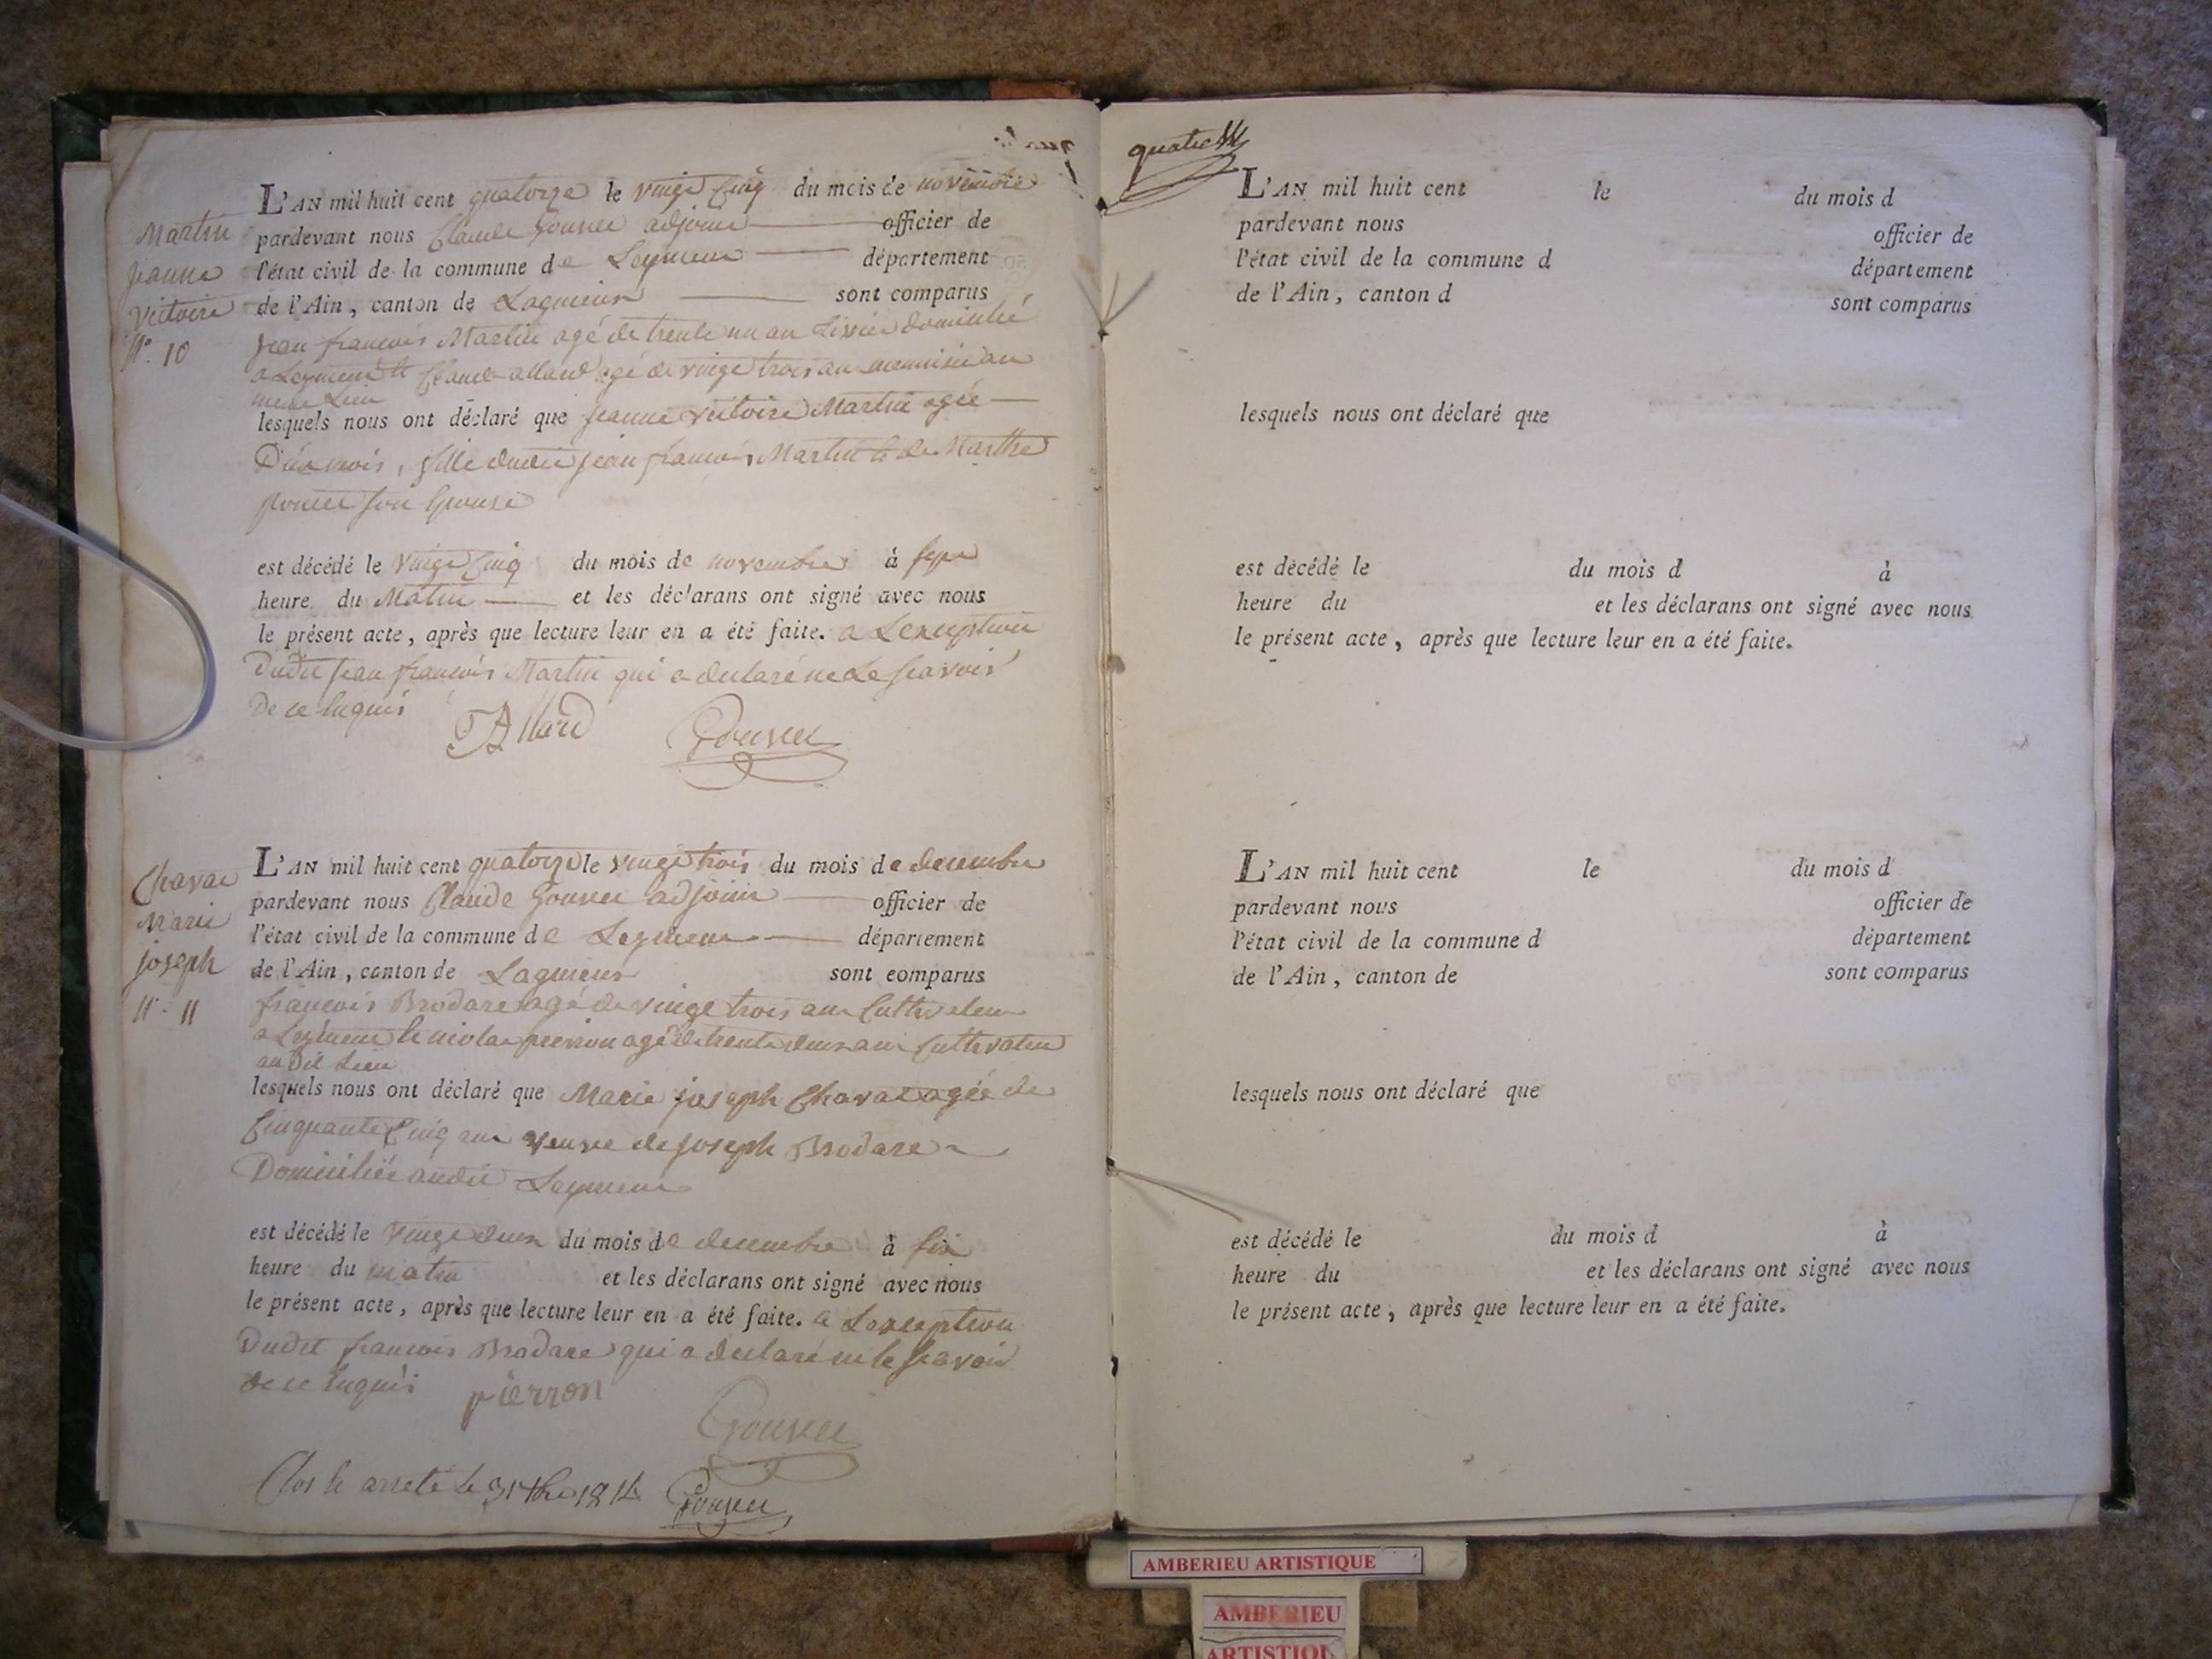 Martin
jeanne
Victoire
N°. 10
L'AN mil huit cent quatorze le vingt Cinq du mois de novembre
pardevant nous Claude adjoint officier de
l'état civil de la commune de Leymeux département
de l'Ain, canton de Lagnieux sont comparus
jean francois Martin agé de trente un an domicilié
a Leymeux et Claude allard agé de vingt trois an menuisier au
meme Lieu
lesquels nous ont déclaré que jeanne Victoire Martin agée
mois, fille dudit jean francois Martin et de Marthe
son Epouse
est décédé le vingt Cinq du mois de novembre à sept
heure du Matin et les déclarans ont signé avec nous
le présent acte, après que lecture leur en a été faite. a Lexception
Dudit jean francois Martin qui a declaré ne Le scavoir
De ce Enquis
Allard
Chavat
Marie
joseph
N°. 11
L'AN mil huit cent quatorze le vingt trois du mois de decembre
pardevant nous Claude adjoint officier de
l'état civil de la commune de Leymeux département
de l'Ain, canton de Lagnieux sont comparus
francois Brodare agé de vingt trois ans Cultivateur
a Leymeux et nicolas pierron agé de trente deux ans Cultivateur
au Dit Lieu
lesquels nous ont déclaré que Marie joseph Chavat agée de
Cinquante Cinq ans veuve de joseph Brodare
Domiciliée audit Leymeux
est décédé le vingt deux du mois de decembre à six
heure du matin et les déclarans ont signé avec nous
le présent acte, après que lecture leur en a été faite. a Lexception
Dudit francois Brodare qui a declaré ne le scavoir
de ce Enquis
pierron
Clos et arreté le 31 1814
quatre
L'AN mil huit cent le du mois d
pardevant nous officier de
l'état civil de la commune d département
de l'Ain, canton d sont comparus
lesquels nous ont déclaré que
est décédé le du mois d à
heure du et les déclarans ont signé avec nous
le présent acte, après que lecture leur en a été faite.
L'AN mil huit cent le du mois d
pardevant nous officier de
l'état civil de la commune d département
de l'Ain, canton de sont comparus
lesquels nous ont déclaré que
est décédé le du mois d à
heure du et les déclarans ont signé avec nous
le présent acte, après que lecture leur en a été faite.
AMBERIEU ARTISTIQUE
AMBERIEU
ARTISTIQU